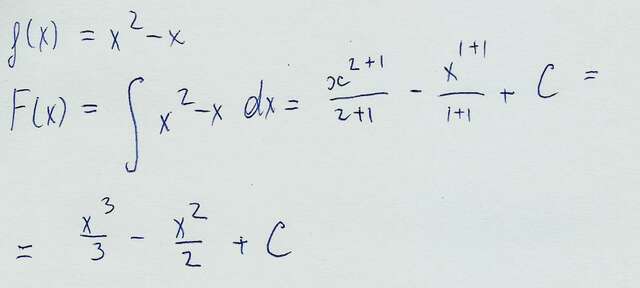 f(x) = x² - x
F(x) = ∫ x² - x dx = x²⁺¹/2+1 - x¹⁺¹/1+1 + C =
= x³/3 - x²/2 + C